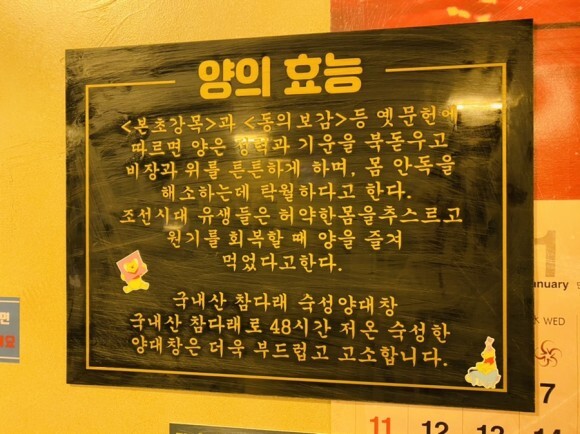 양의 효능
<본초강목>과 <동의보감>등 옛문헌에
따르면 양은 정력과 기운을 북돋우고
비장과 위를 튼튼하게 하며, 몸 안독을
해소하는데 탁월하다고 한다.
조선시대 유생들은 허약한몸을추스르고
원기를 회복할 때 양을 즐겨
먹었다고한다.
국내산 참다래 숙성양대창
국내산 참다래로 48시간 저온 숙성한
양대창은 더욱 부드럽고 고소합니다.
1
WED
7
11 12 13 14